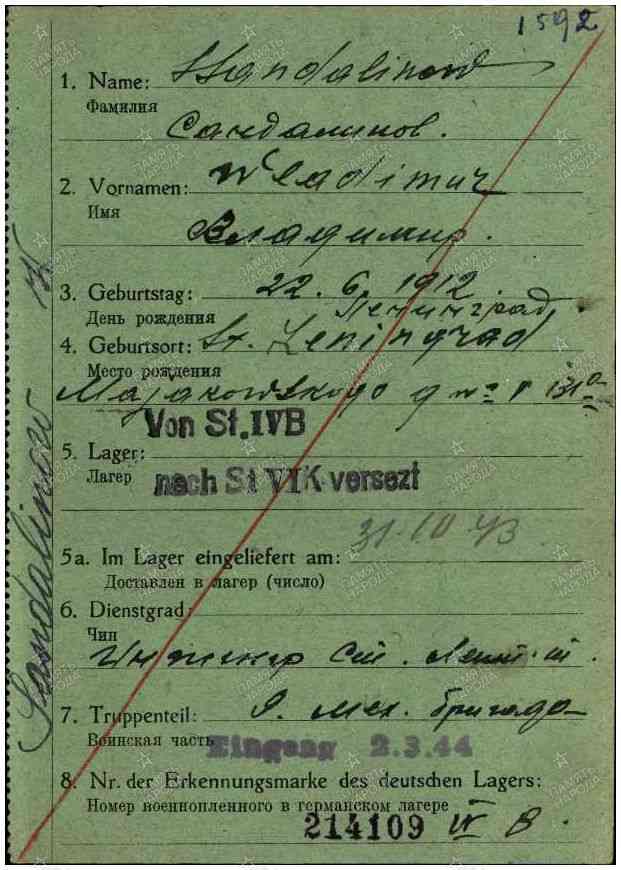 1592
1. Name: Ssandalinow
Фамилия
Сандалинов.
2. Vornamen: Wladimir
Имя
Владимир.
3. Geburtstag: 22.6.1912.
День рождения
Ленинград
4. Geburtsort: St. Leningrad
Место рождения
Majakowskogo
Von St.IVB
5. Lager:
Лагерь
nach St VI K versezt
31.10.43.
5a. Im Lager eingeliefert am:
Доставлен в лагер (число)
6. Dienstgrad:
Чин
Инженер Ст. Лейт-т.
7. Truppenteil: 9. мех. бригада
Воинская часть
Eingang 2.3.44
8. Nr. der Erkennungsmarke des deutschen Lagers:
Номер военнопленного в германском лагере
214109 IV B.
Sandalinow
ПАМЯТЬ НАРОДА